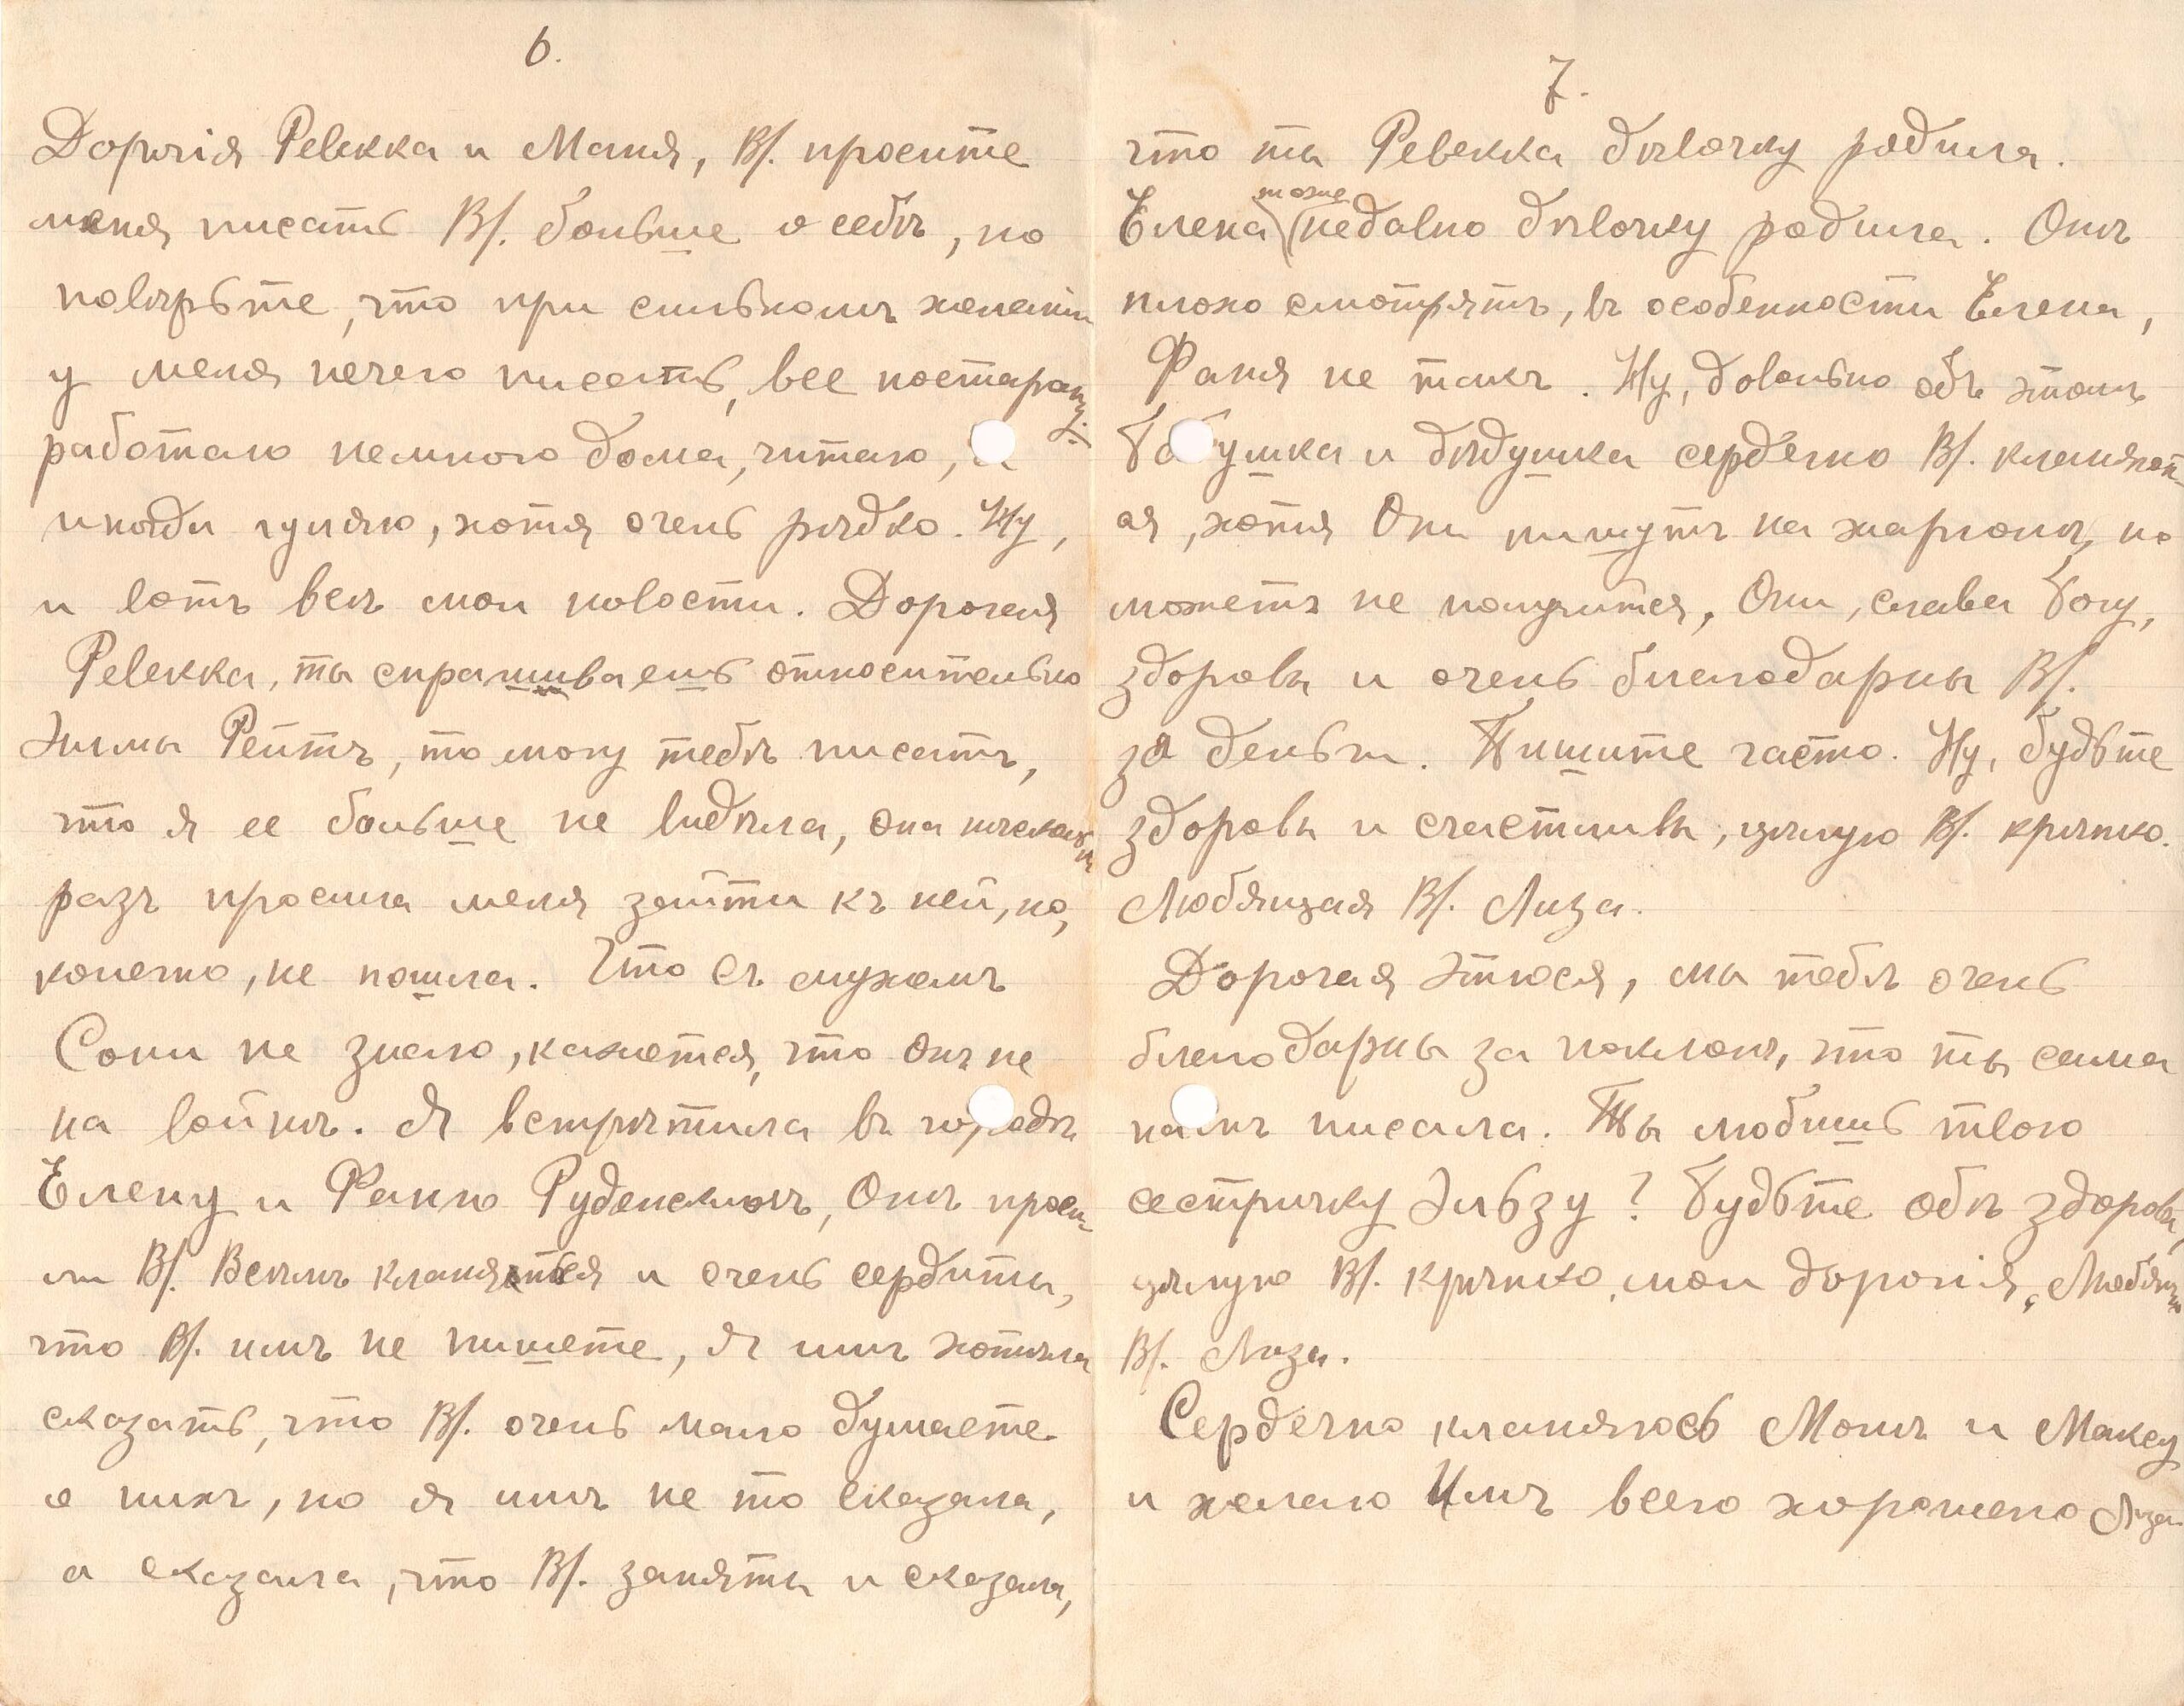 6.
Дорогія Ревекка и Маня, В/. просите
меня писать В/. больше о себѣ, но
повѣрьте, что при сильномъ желаніи
у меня нечего писать, все по старому:
работаю немного дома, читаю, и
иногда гуляю, хотя очень рѣдко. Ну,
и вотъ всѣ мои новости. Дорогая
Ревекка, ты спрашиваешь относительно
Эммы Рейтъ, то могу тебѣ писать,
что я ее больше не видѣла, она нѣсколько
разъ просила меня зайти къ ней, но,
конечно, не пошла. Что съ мужемъ
Сони не знаю, кажется, что онъ не
на войнѣ. Я встрѣтила въ городѣ
Елену и Фаню Руденскихъ, Онѣ проси-
ли В/. Всѣмъ кланяться и очень сердиты,
что В/. имъ не пишете, Я имъ хотѣла
сказать, что В/. очень мало думаете
о нихъ, но я имъ не то сказала,
а сказала, что В/. заняты и сказала,
7.
что ты Ревекка дѣвочку родила.
Елена тоже недавно дѣвочку родила. Онѣ
плохо смотрятъ, въ особенности Елена,
Фаня не такъ. Ну, довольно объ этомъ
Бабушка и дѣдушка сердечно В/. кланяют-
ся, хотя Они пишутъ на жаргонѣ, но
можетъ не получится, Они, слава Богу,
здоровы и очень благодарны В/.
за деньги. Пишите часто. Ну, будьте
здоровы и счастливы, цѣлую В/. крѣпко.
Любящая В/. Лиза.
Дорогая Этюся, мы тебѣ очень
благодарны за поклонъ, что ты сама
намъ писала. Ты любишь твою
сестричку Эльзу? Будьте обѣ здоровы,
цѣлую В/. крѣпко, мои дорогія, Любящая
В/. Лиза.
Сердечно кланяюсь Монѣ и Максу
и желаю Имъ всего хорошего Лиза.